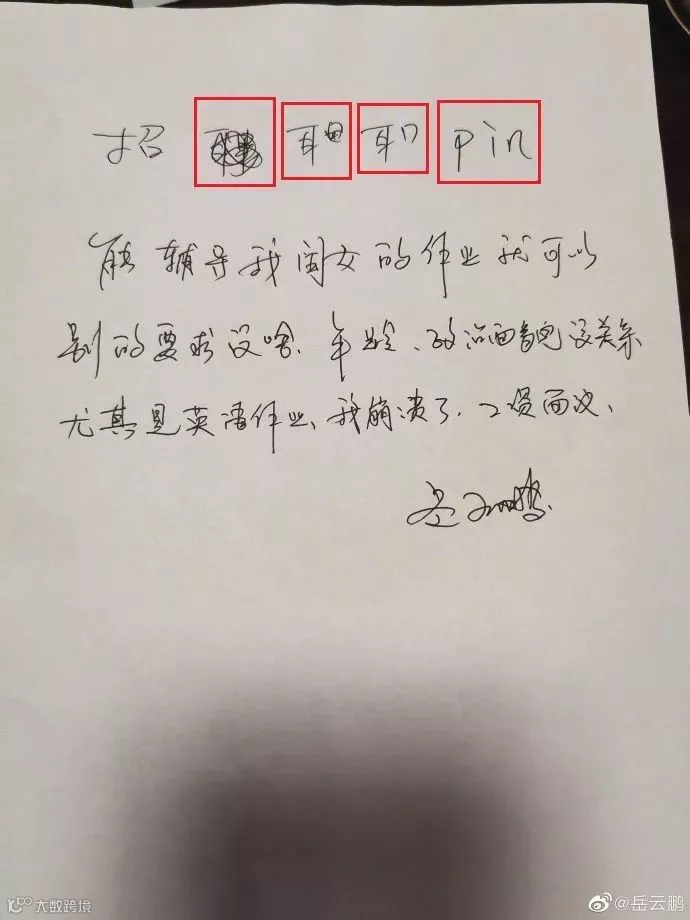 招 pin
能辅导我闺女的作业就可以
别的要求没啥、年龄、政治面貌没关系
尤其是英语作业、我崩溃了、工资面议、
岳云鹏
大数跨境
@岳云鹏